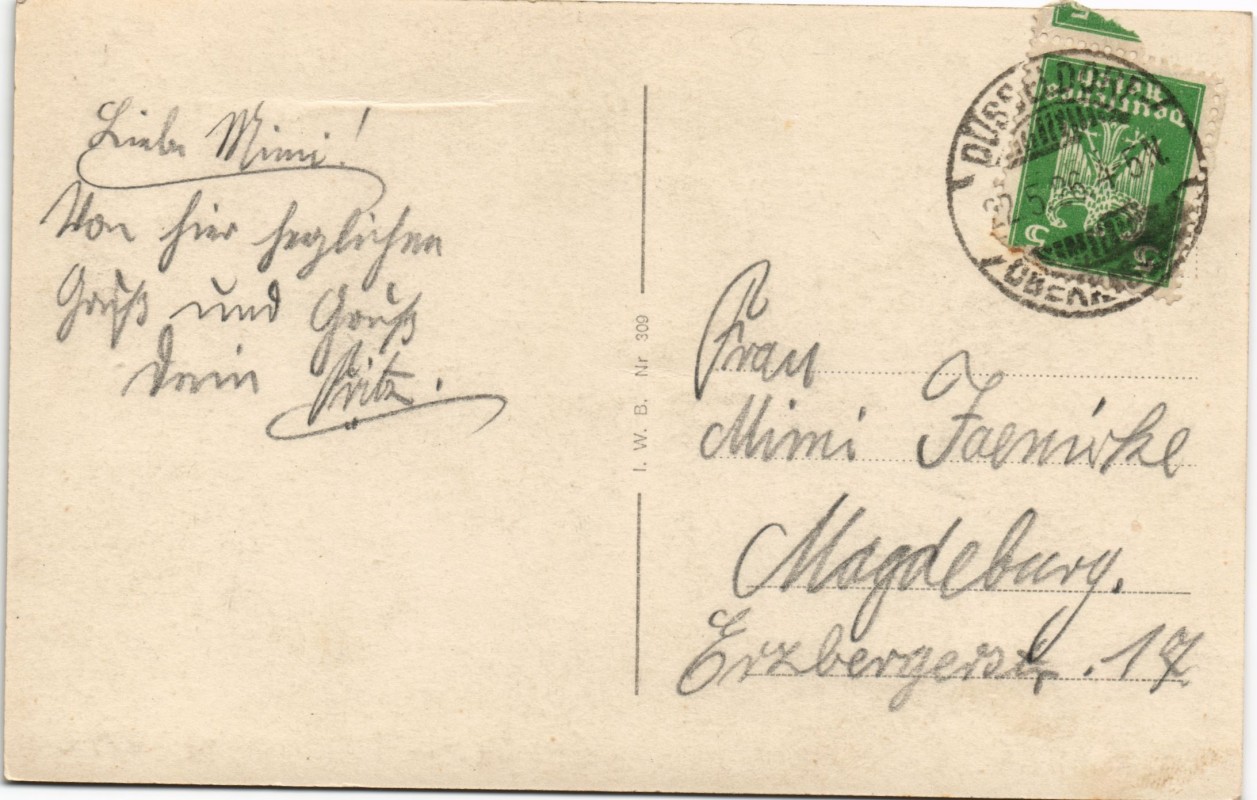 Liebe Mimi!
Von hier herzlichen
Gruß und Gruß
Dein Fritz.
I. W. B. Nr 309
DÜSSELDORF
2.5.26. 4-5N.
OBERKASSEL
Deutsches
Reich
5 5
Frau
Mimi Jaenicke
Magdeburg.
Erzbergerstr. 17